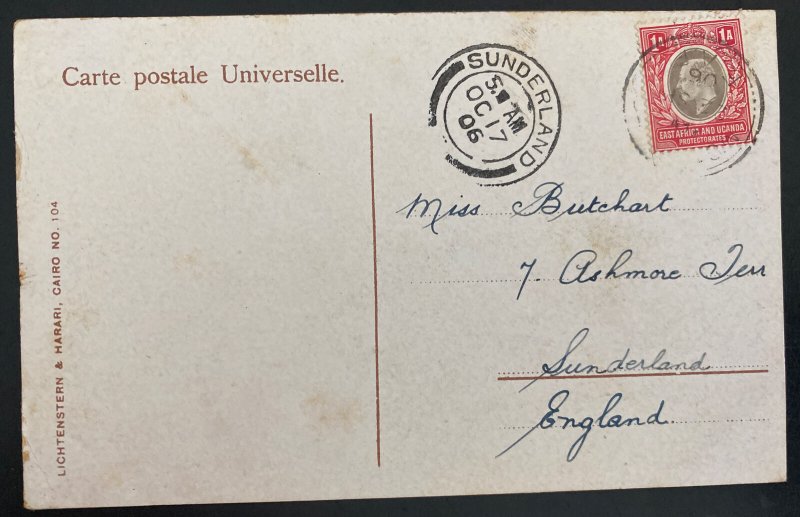 Carte postale Universelle.
LICHTENSTERN & HARARI, CAIRO NO. 104
SUNDERLAND
AM
OC 17
06
1A 1A
EAST AFRICA AND UGANDA
PROTECTORATES
Miss Butchart
7. Ashmore Terr
Sunderland
England